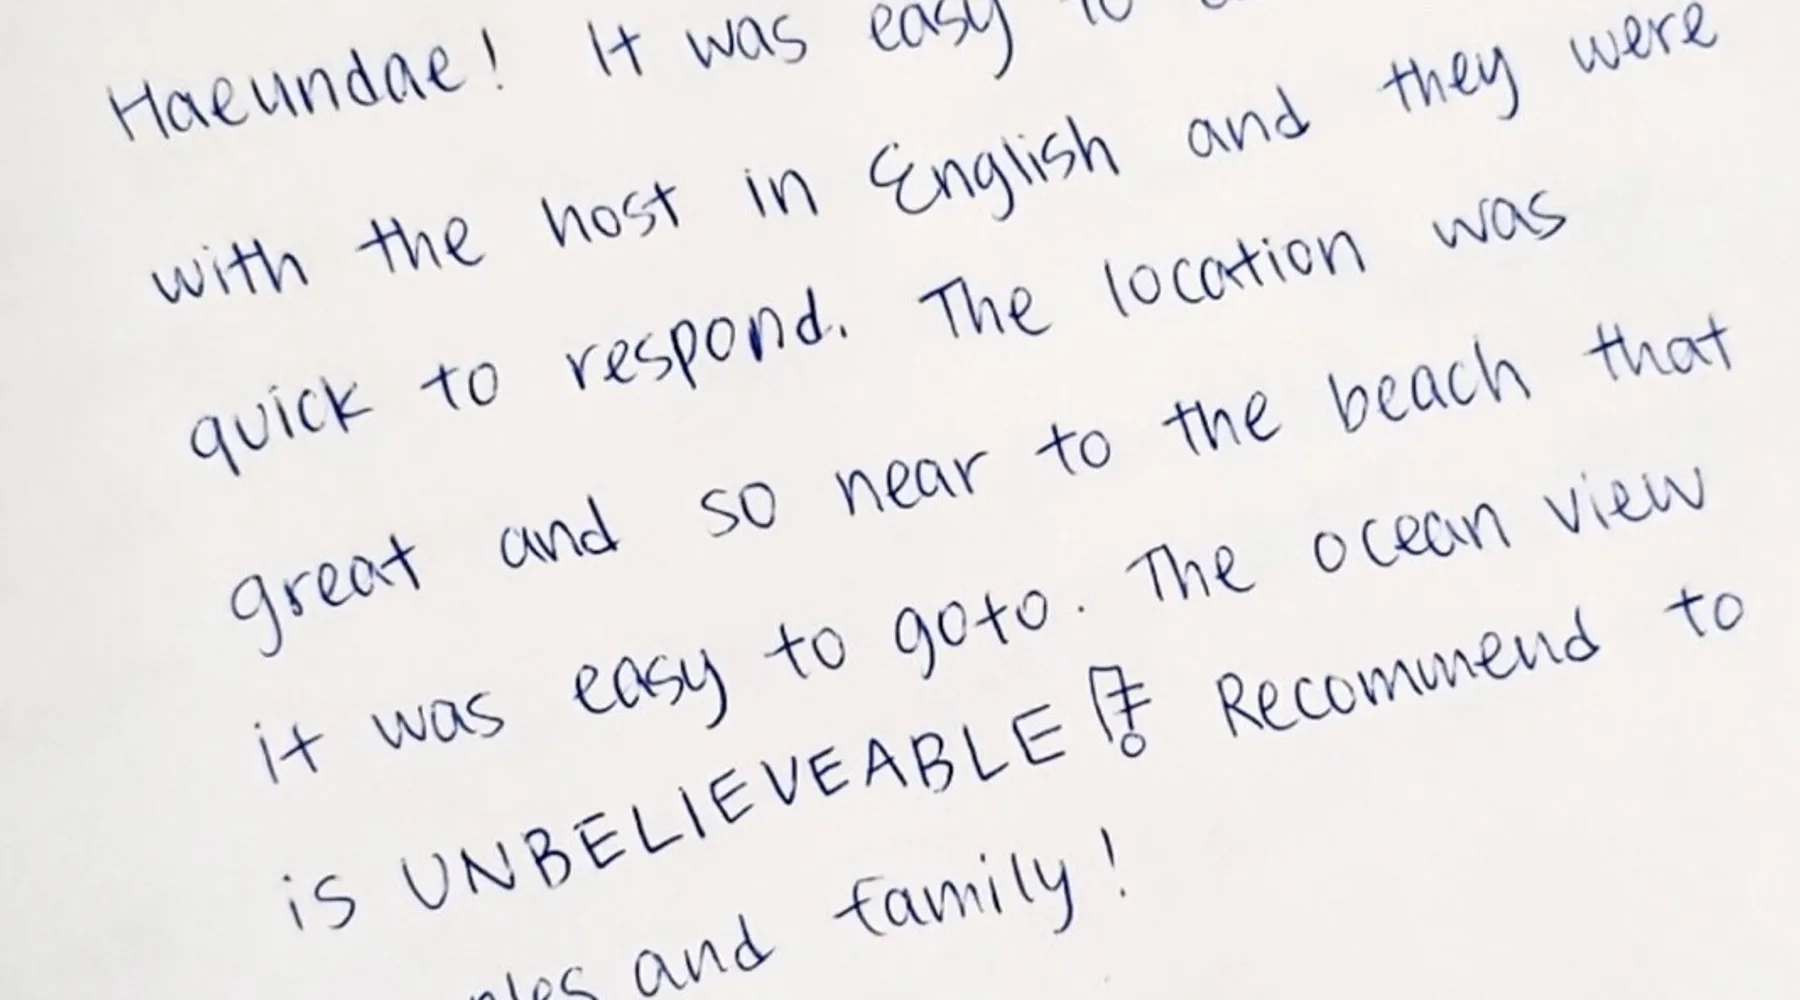 Haeundae! It was easy to
with the host in English and they were
quick to respond. The location was
great and so near to the beach that
it was easy to goto. The ocean view
is UNBELIEVEABLE! Recommend to
and family!